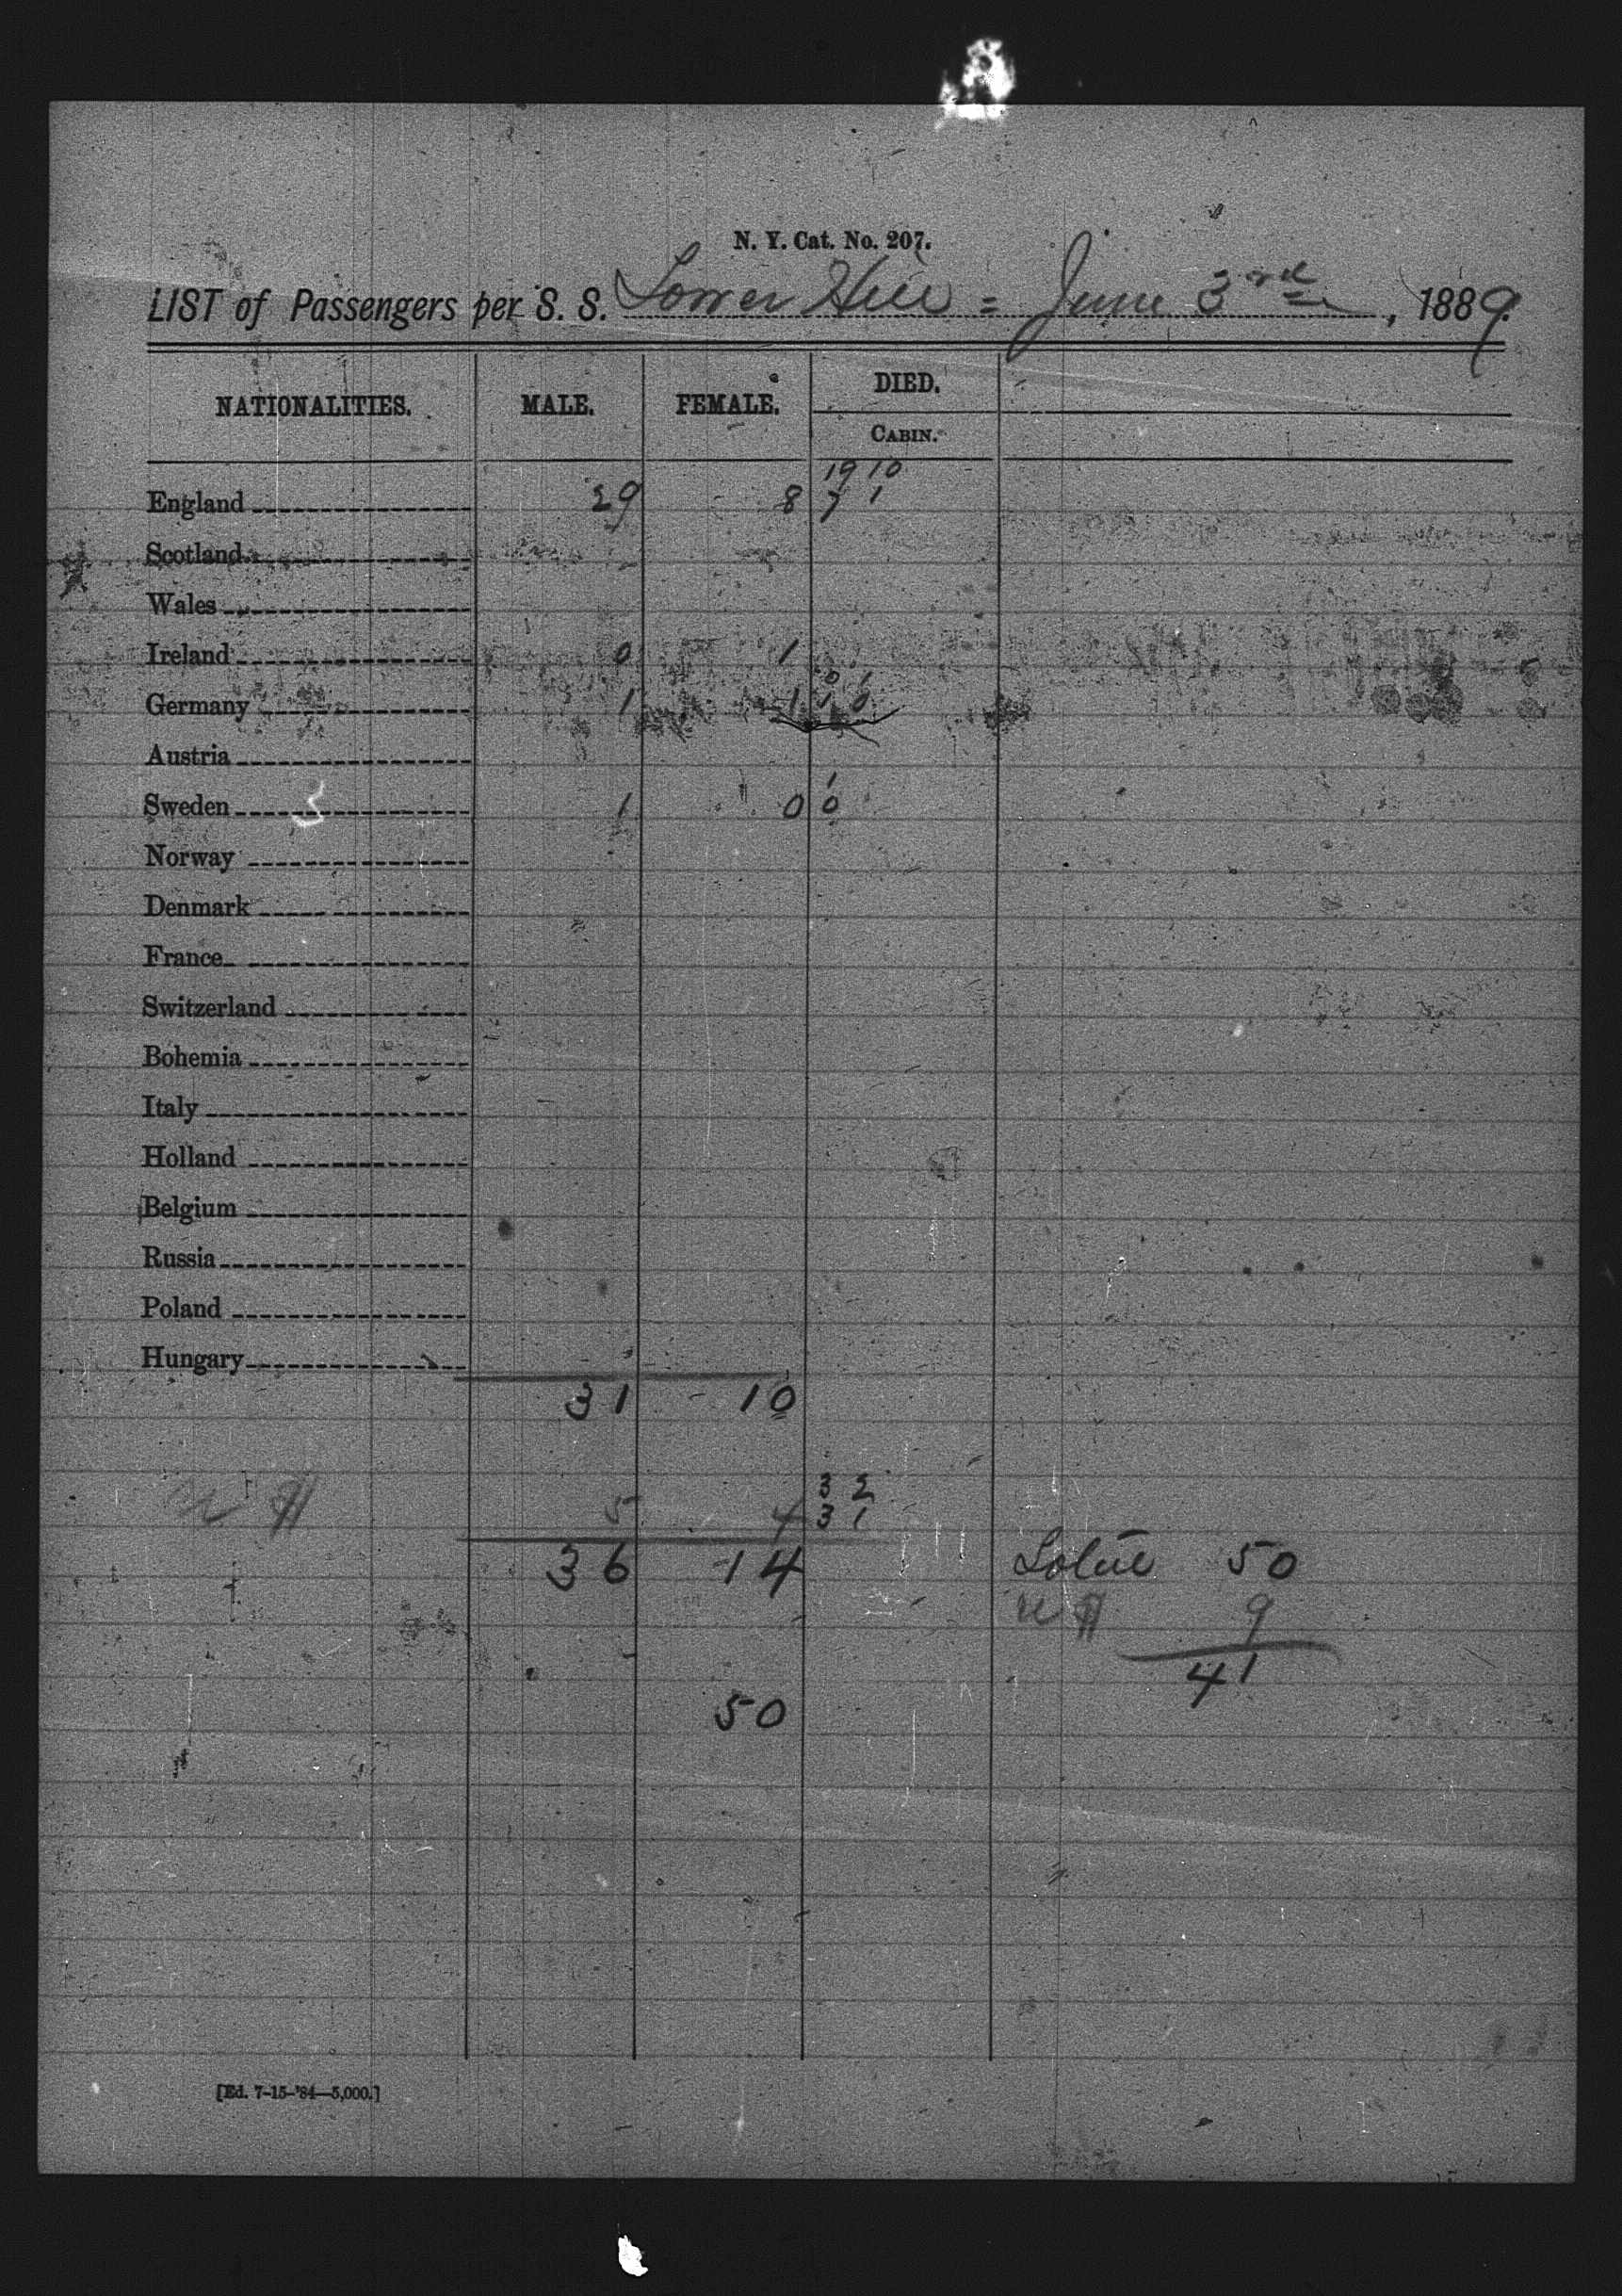 N. Y. Cat. No. 207.
LIST of Passengers per S. S. Tower Hill = June 3rd, 1889.
NATIONALITIES. MALE. FEMALE. DIED.
CABIN.
19 10
England 29 8 7 1
Scotland
Wales
Ireland 0 1
0 1
Germany 1 1 1 0
Austria
1
Sweden 1 0 0
Norway
Denmark
France
Switzerland
Bohemia
Italy
Holland
Belgium
Russia
Poland
Hungary
31 10
3 2
5 4 3 1
36 14 50
9
41
50
[Ed. 7-15-'84—5,000.]